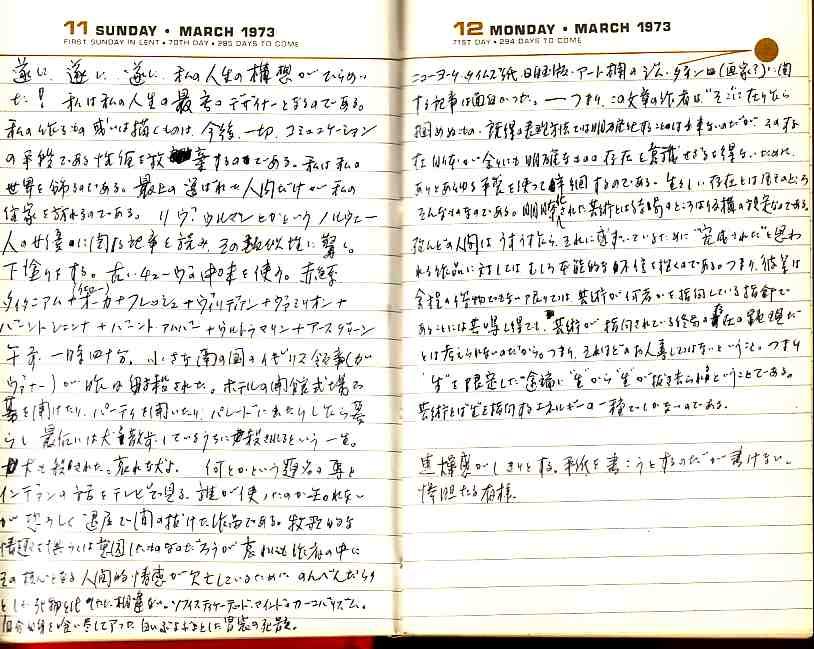 11 SUNDAY • MARCH 1973
FIRST SUNDAY IN LENT • 70TH DAY • 295 DAYS TO COME
遂に、遂に、遂に、私の人生の構想が
た! 私は私の人生の最高のデザイナーとなるのである。
私の作るもの或いは描くものは、今後、一切、コミュニケーション
の手段である性質を放棄するのである。私は私の
世界を飾るのである。最上の選ばれた人間だけが私の
を訪れるのである。 リヴ・ウルマンとかいうノルウェー
人の女優に関する記事を読み、その類似性に驚く。
下塗りをする。古いチューブの中味を使う。赤系
タイタニアム+オーカ+フレッシュ+ヴィリディアン+ヴァミリオン+
(イエロー)
バーントシェンナ+バーントアンバー+ウルトラマリン+アースグリーン
午前一時四十分。小さな南の国のイギリス領事(が
ヴァナー)が昨日暗殺された。ホテルの開館式で
幕を開けたり、パーティを開いたり、パレードに出たりしながら暮
らし、最后には犬と散歩しているうちに殺されるという一生。
犬も殺された。哀れな犬よ。 何とかという題名の
インデアンの話をテレビで見る。誰が使ったのか知れない
が恐ろしく退屈で間の抜けた作品である。牧歌的な
情趣を は意図したものなのだろうが哀れにも作者の中に
その核心となる人間的情感が欠乏しているためにのんべんだらり
とした ソフィスティケーテッド・マインドの
自分自身を喰い尽してアった白い
12 MONDAY • MARCH 1973
71ST DAY • 294 DAYS TO COME
ニューヨーク・タイムズ紙、日曜版・アート欄のジム・ダイン(画家?)に関
する記事は面白かった。——つまり、この文章の作者は、"そこに在りなら
掴めぬもの、 表現方法では明確化することは出来ないのだが、その存
在 が余りにも明確なものの存在を意識せざるを得ないために、
ありとあらゆる手段を使って するのである。生々しい存在とは
そんなものなのである。明瞭化された芸術とは結局のところは の設定なのである。
殆んどの人間はうすうすながら、それに感づいているために"完成された"と思わ
れる作品に対してはむしろ本能的な不信を抱くのである。つまり、彼等は
限りでは芸術が何者かを指向している指針で
あることには 得ても、芸術が指向されている終局の存在の具現だ
とは考えられないのだから。つまり、それほどのお人善しではないということ。つまり
"生"を限定した途端に"生"から"生"が抜き去られるということである。
芸術とは"生"を指向するエネルギーの一種でしかないのである。
焦燥感がしきりとする。手紙を書こうとするのだが書けない。